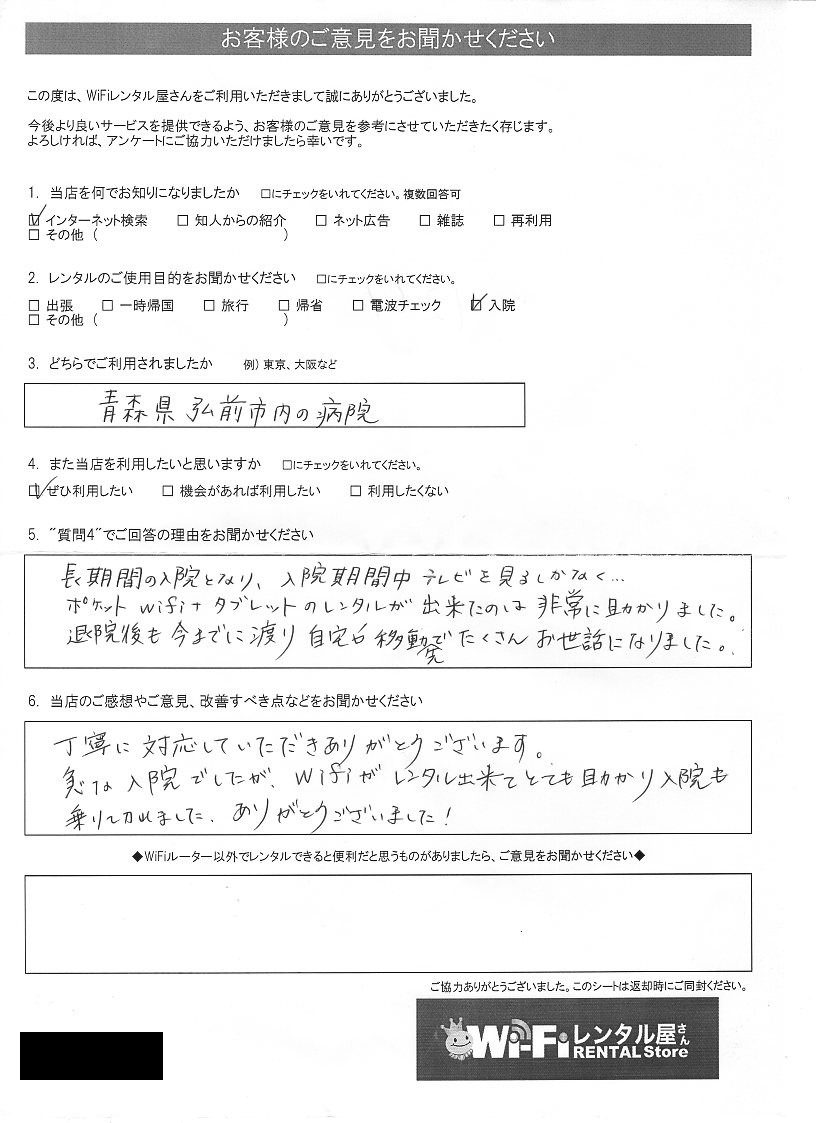 お客様のご意見をお聞かせください
この度は、WiFiレンタル屋さんをご利用いただきまして誠にありがとうございました。
今後より良いサービスを提供できるよう、お客様のご意見を参考にさせていただきたく存じます。
よろしければ、アンケートにご協力いただけましたら幸いです。
1. 当店を何でお知りになりましたか □にチェックをいれてください。複数回答可
☑ インターネット検索 □ 知人からの紹介 □ ネット広告 □ 雑誌 □ 再利用
□ その他 ( )
2. レンタルのご使用目的をお聞かせください □にチェックをいれてください。
□ 出張 □ 一時帰国 □ 旅行 □ 帰省 □ 電波チェック ☑ 入院
□ その他 ( )
3. どちらでご利用されましたか 例) 東京、大阪など
青森県 弘前市内の病院
4. また当店を利用したいと思いますか □にチェックをいれてください。
☑ ぜひ利用したい □ 機会があれば利用したい □ 利用したくない
5. "質問4"でご回答の理由をお聞かせください
長期間の入院となり、入院期間中テレビを見るしかなく…
ポケットwifi+タブレットのレンタルが出来たのは非常に助かりました。
退院後も今までに渡り自宅 移動先でたくさんお世話になりました。
6. 当店のご感想やご意見、改善すべき点などをお聞かせください
丁寧に対応していただきありがとうございます。
急な入院でしたが、wifiがレンタル出来てとても助かり入院も
乗り切れました、ありがとうございました!
◆WiFiルーター以外でレンタルできると便利だと思うものがありましたら、ご意見をお聞かせください◆
ご協力ありがとうございました。このシートは返却時にご同封ください。
Wi-Fiレンタル屋さん
RENTAL Store